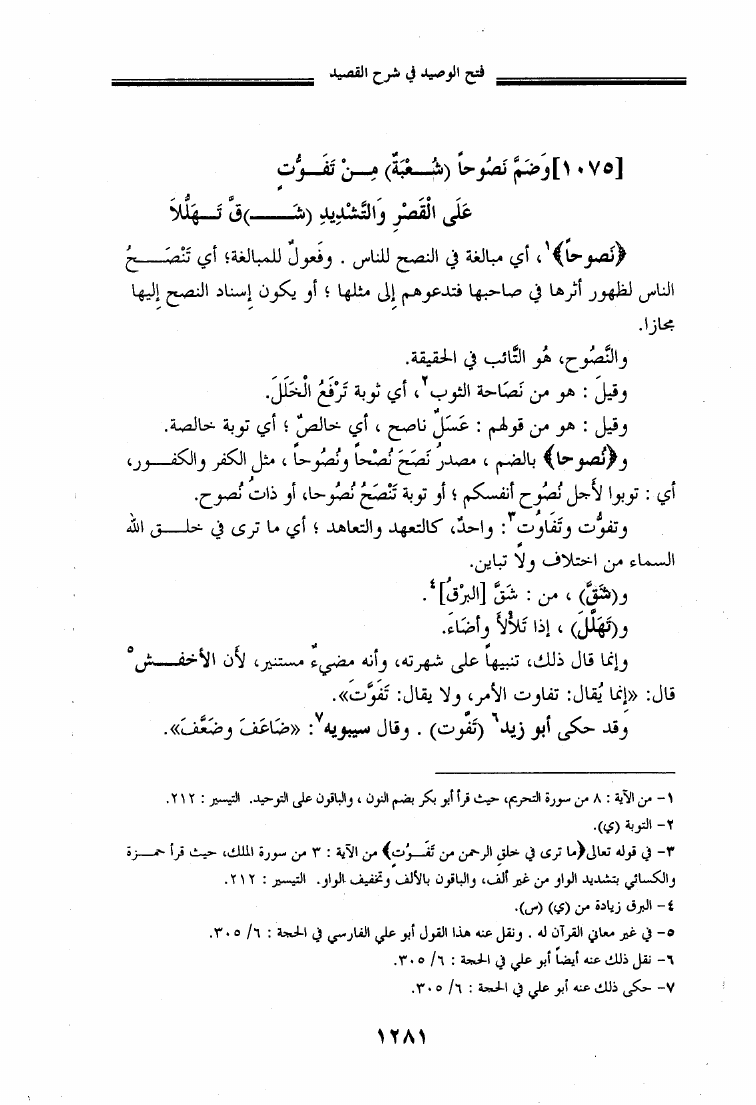 فتح الوصيد في شرح القصيد
[١٠٧٥] وَضَمَّ نَصُوحاً (شُـعْبَةٌ) مِـنْ تَفَـوُّتٍ
عَلَى الْقَصْرِ وَالتَّشْدِيدِ (شَــــ)قَّ تَـهَلُّلاَ
﴿نَصوحاً﴾١، أي مبالغة في النصح للناس . وفَعولٌ للمبالغة؛ أي تَنْصَـــحُ
الناس لظهور أثرها في صاحبها فتدعوهم إلى مثلها ؛ أو يكون إسناد النصح إليها
مجازا.
والنَّصُوح، هُو التَّائب في الحقيقة.
وقيلَ : هو من نَصَاحة الثوب٢، أي توبة تَرْفَعُ الْخَلَلَ.
وقيل : هو من قولهم : عَسَلٌ ناصح ، أي خالصٌ ؛ أي توبة خالصة.
و﴿نُصوحا﴾ بالضم ، مصدرُ نَصَحَ نُصْحاً ونُصُوحاً ، مثل الكفر والكفـــور،
أي : توبوا لأجل نُصُوح أنفسكم ؛ أو توبة تَنْصَحُ نُصُوحا، أو ذاتُ نُصوح.
وتفوُّت وتَفَاوُت٣: واحدٌ، كالتعهد والتعاهد ؛ أي ما ترى في خلـــق الله
السماء من اختلاف ولا تباين.
و(شَقَّ) ، من : شَقَّ [البرْقُ]٤.
و(تَهَلَّلَ) ، إذا تَلأْلأَ وأضَاءَ.
وإنما قال ذلك، تنبيهاً على شهرته، وأنه مضيءٌ مستنير، لأن الأخفـــش٥
قال: «إنما يُقال: تفاوت الأمر، ولا يقال: تَفَوَّتَ».
وقد حكى أبو زيد٦ (تَفَّوت) . وقال سيبويه٧: «ضَاعَفَ وضَعَّفَ».
١- من الآية : ٨ من سورة التحريم، حيث قرأ أبو بكر بضم النون ، والباقون على التوحيد. التيسير : ٢١٢.
٢- التوبة (ي).
٣- في قوله تعالى ﴿ما ترى في خلق الرحمن من تَفَـوُتٍ﴾ من الآية : ٣ من سورة الملك، حيث قرأ حمـــزة
والكسائي بتشديد الواو من غير ألف، والباقون بالألف وتخفيف الواو. التيسير : ٢١٢.
٤- البرق زيادة من (ي) (س).
٥- في غير معاني القرآن له . ونقل عنه هذا القول أبو علي الفارسي في الحجة : ٦/ ٣٠٥.
٦- نقل ذلك عنه أيضاً أبو علي في الحجة : ٦/ ٣٠٥.
٧- حكى ذلك عنه أبو علي في الحجة : ٦/ ٣٠٥.
١٢٨١